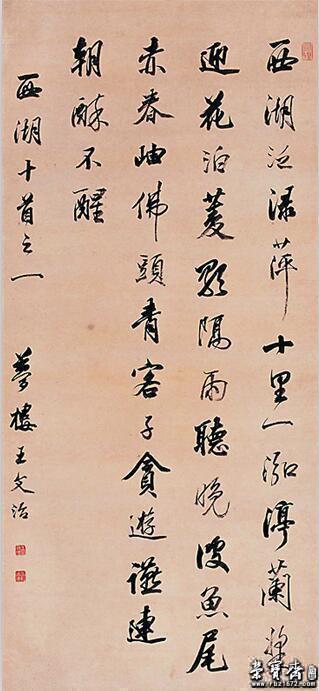 西湖泛淥萍十里一泓渟蘭
迎花泊菱歌隔雨聽晚波魚尾
赤春岫佛頭青客子貪遊讌連
朝醉不醒
西湖十首之一
夢樓王文治
www.rbz1672.com